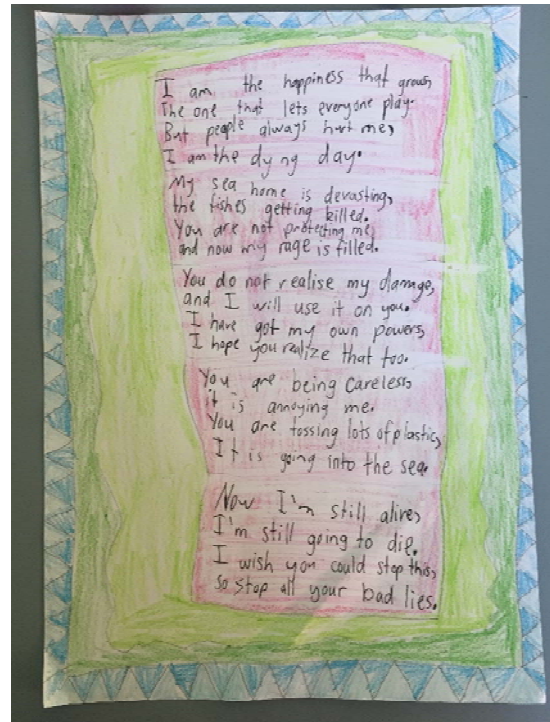 I am the happiness that grows,
The one that lets everyone play.
But people always hurt me,
I am the dying day.
My sea home is devasting,
the fishes getting killed.
You are not protecting me,
and now my rage is filled.
You do not realise my damage,
and I will use it on you.
I have got my own powers,
I hope you realize that too.
You are being careless,
it is annoying me.
You are tossing lots of plastic,
It is going into the sea.
Now I'm still alive,
I'm still going to die.
I wish you could stop this,
so stop all your bad lies.